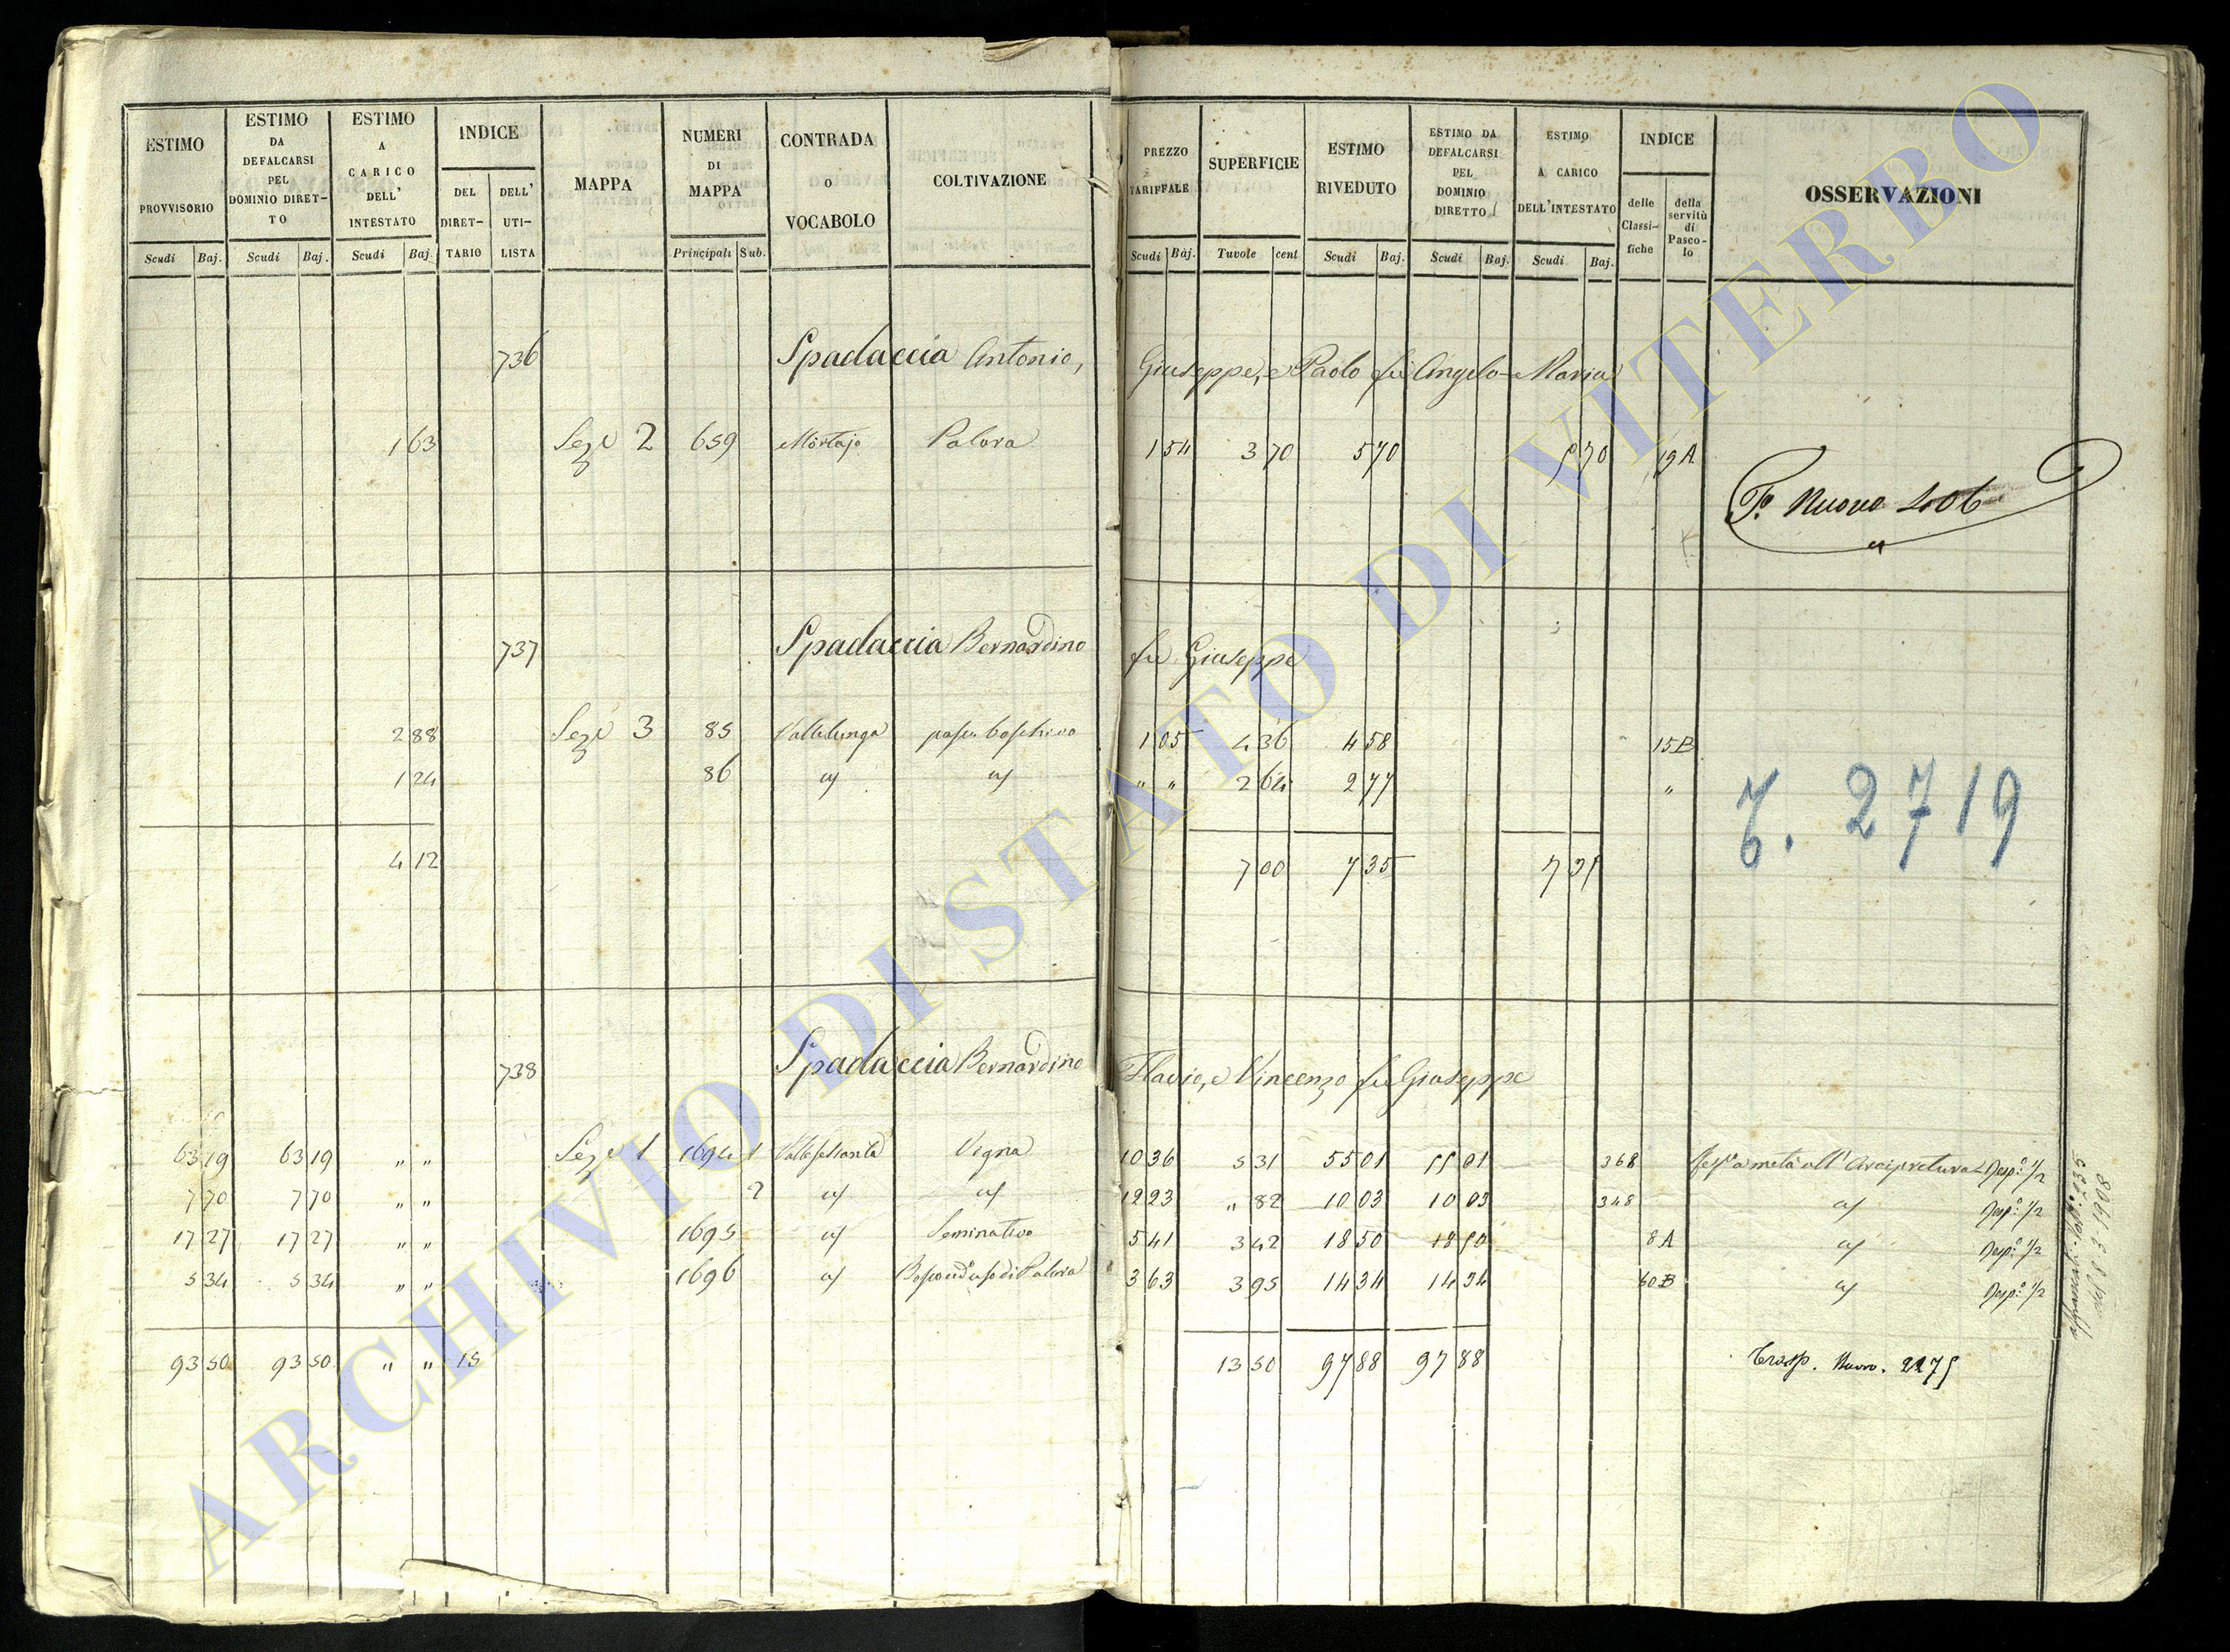 ESTIMO PROVVISORIO Scudi Baj.
ESTIMO DA DEFALCARSI PEL DOMINIO DIRET-TO Scudi Baj.
ESTIMO A CARICO DELL' INTESTATO Scudi Baj.
INDICE DEL DIRET-TARIO DELL' UTI-LISTA
MAPPA
NUMERI DI MAPPA Principali Sub.
CONTRADA O VOCABOLO
COLTIVAZIONE
PREZZO TARIFFALE Scudi Baj.
SUPERFICIE Tavole cent
ESTIMO RIVEDUTO Scudi Baj.
ESTIMO DA DEFALCARSI PEL DOMINIO DIRETTO Scudi Baj.
ESTIMO A CARICO DELL'INTESTATO Scudi Baj.
INDICE delle Classi-fiche della servitù di Pasco-lo
OSSERVAZIONI
736 Spadaccia Antonio, Giuseppe, e Paolo fu Angelo Maria
1 63 Seze 2 659 Mortajo Palara 1 54 3 70 5 70 5 70 19 A
Pa. Nuova 406
737 Spadaccia Bernardino fu Giuseppe
2 88 Seze 3 85 Vallelunga 1 05 4 36 4 58 15 B
1 24 86 " " 2 64 2 77 "
T. 2719
4 12 7 00 7 35 7 35
738 Spadaccia Bernardino Flavio, e Vincenzo fu Giuseppe
63 19 63 19 " " Seze 1 1694 1 Vigna 10 36 5 31 55 01 55 01 368 a metà all' Arcipretura
7 70 7 70 " " 2 12 23 " 82 10 03 10 03 348
17 27 17 27 " " 1695 Seminativo 5 41 3 42 18 50 18 50 8 A
5 34 5 34 " " 1696 3 63 3 95 14 34 14 34 60 B
93 50 93 50 " " 15 13 50 97 88 97 88
Trasp. Nuovo. 2275
ARCHIVIO DI STATO DI VITERBO